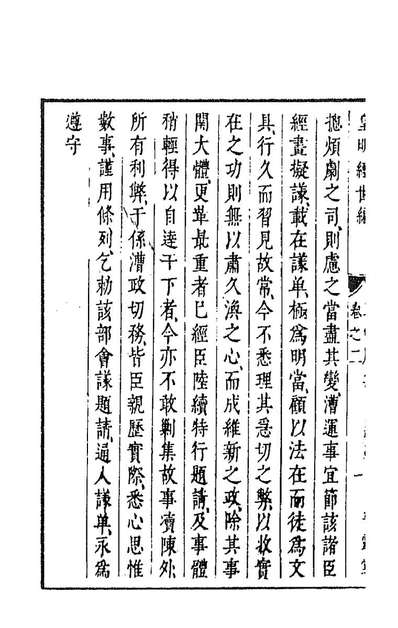 皇明經世編
卷之二
摠煩劇之司則慮之當盡其變漕運事宜節該諸臣
經畫擬議載在議单極爲明當顧以法在而徒爲文
具行久而習見故常今不悉理其恳切之弊以收實
在之功則無以肅久渙之心而成維新之政除其事
関大體更革最重者已經臣陸續特行題請及事體
稍輕得以自逹于下者今亦不敢剿集故事瀆陳外
所有利弊于係漕政切務皆臣親歷實際悉心思惟
數事謹用條列乞勅該部會議題請通入議单永爲
遵守